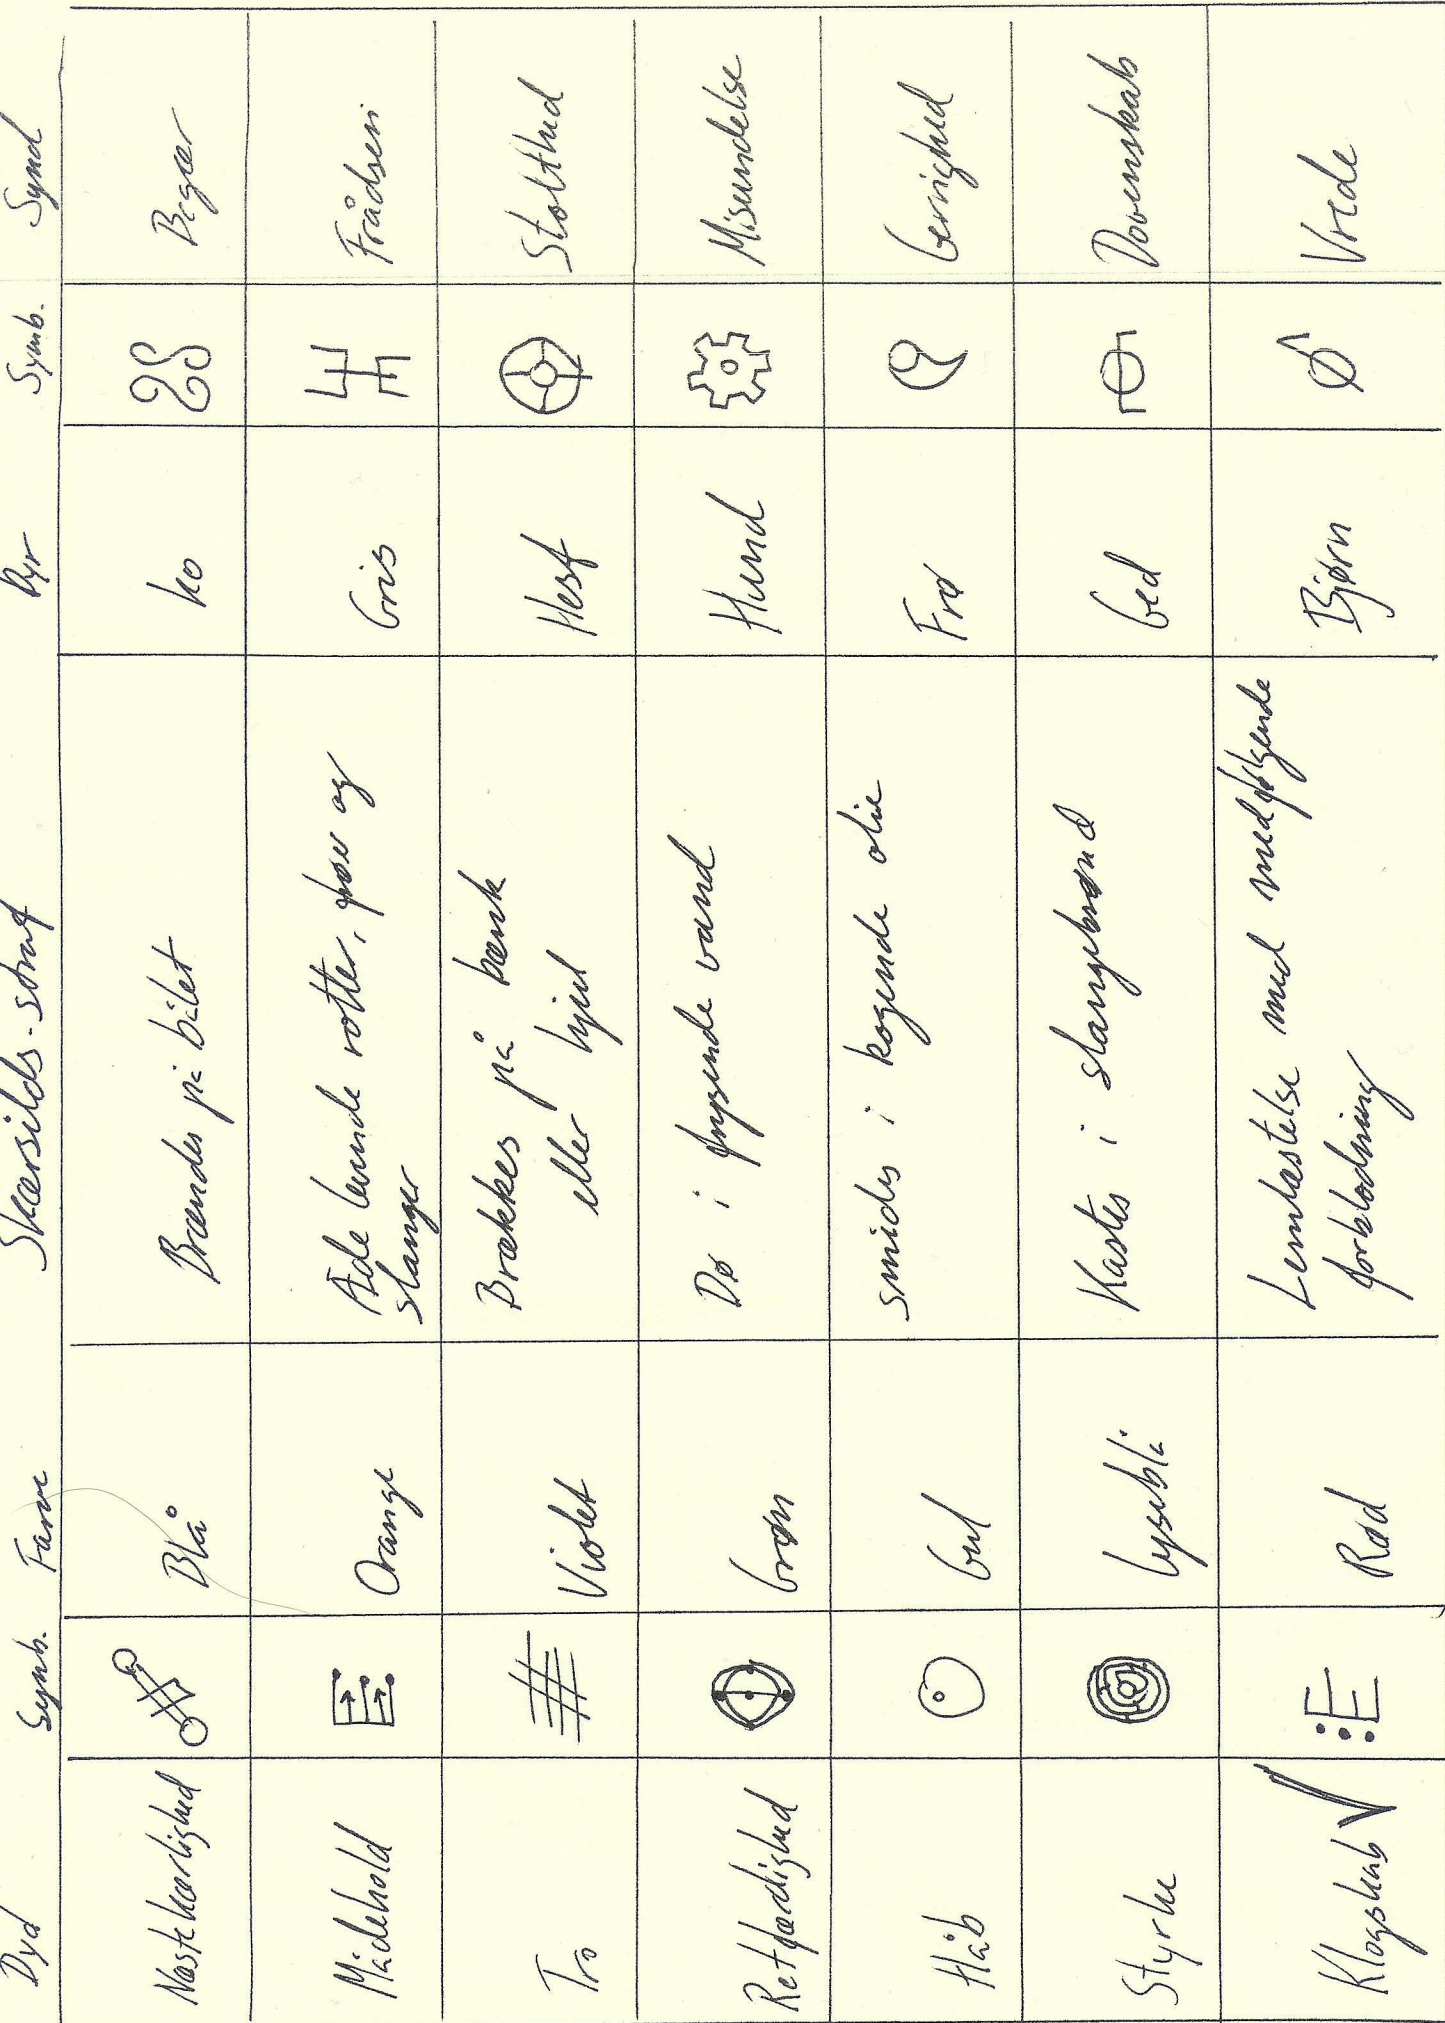 Dyd Symb. Farve Skærsilds-straf Dyr Symb. Synd
Næstekærlighed Blå Brændes på bålet Ko Begær
Mådehold Orange Æde levende rotter, frøer og Gris Frådseri
slanger
Tro Violet Brækkes på bænk Hest Stolthed
eller hjul
Retfærdighed Grøn Dø i frysende vand Hund Misundelse
Håb Gul smides i kogende olie Frø Gerrighed
Styrke Lyseblå Kastes i slangebrønd Ged Dovenskab
Klogskab Rød Lemlæstelse med medfølgende Bjørn Vrede
forblødning